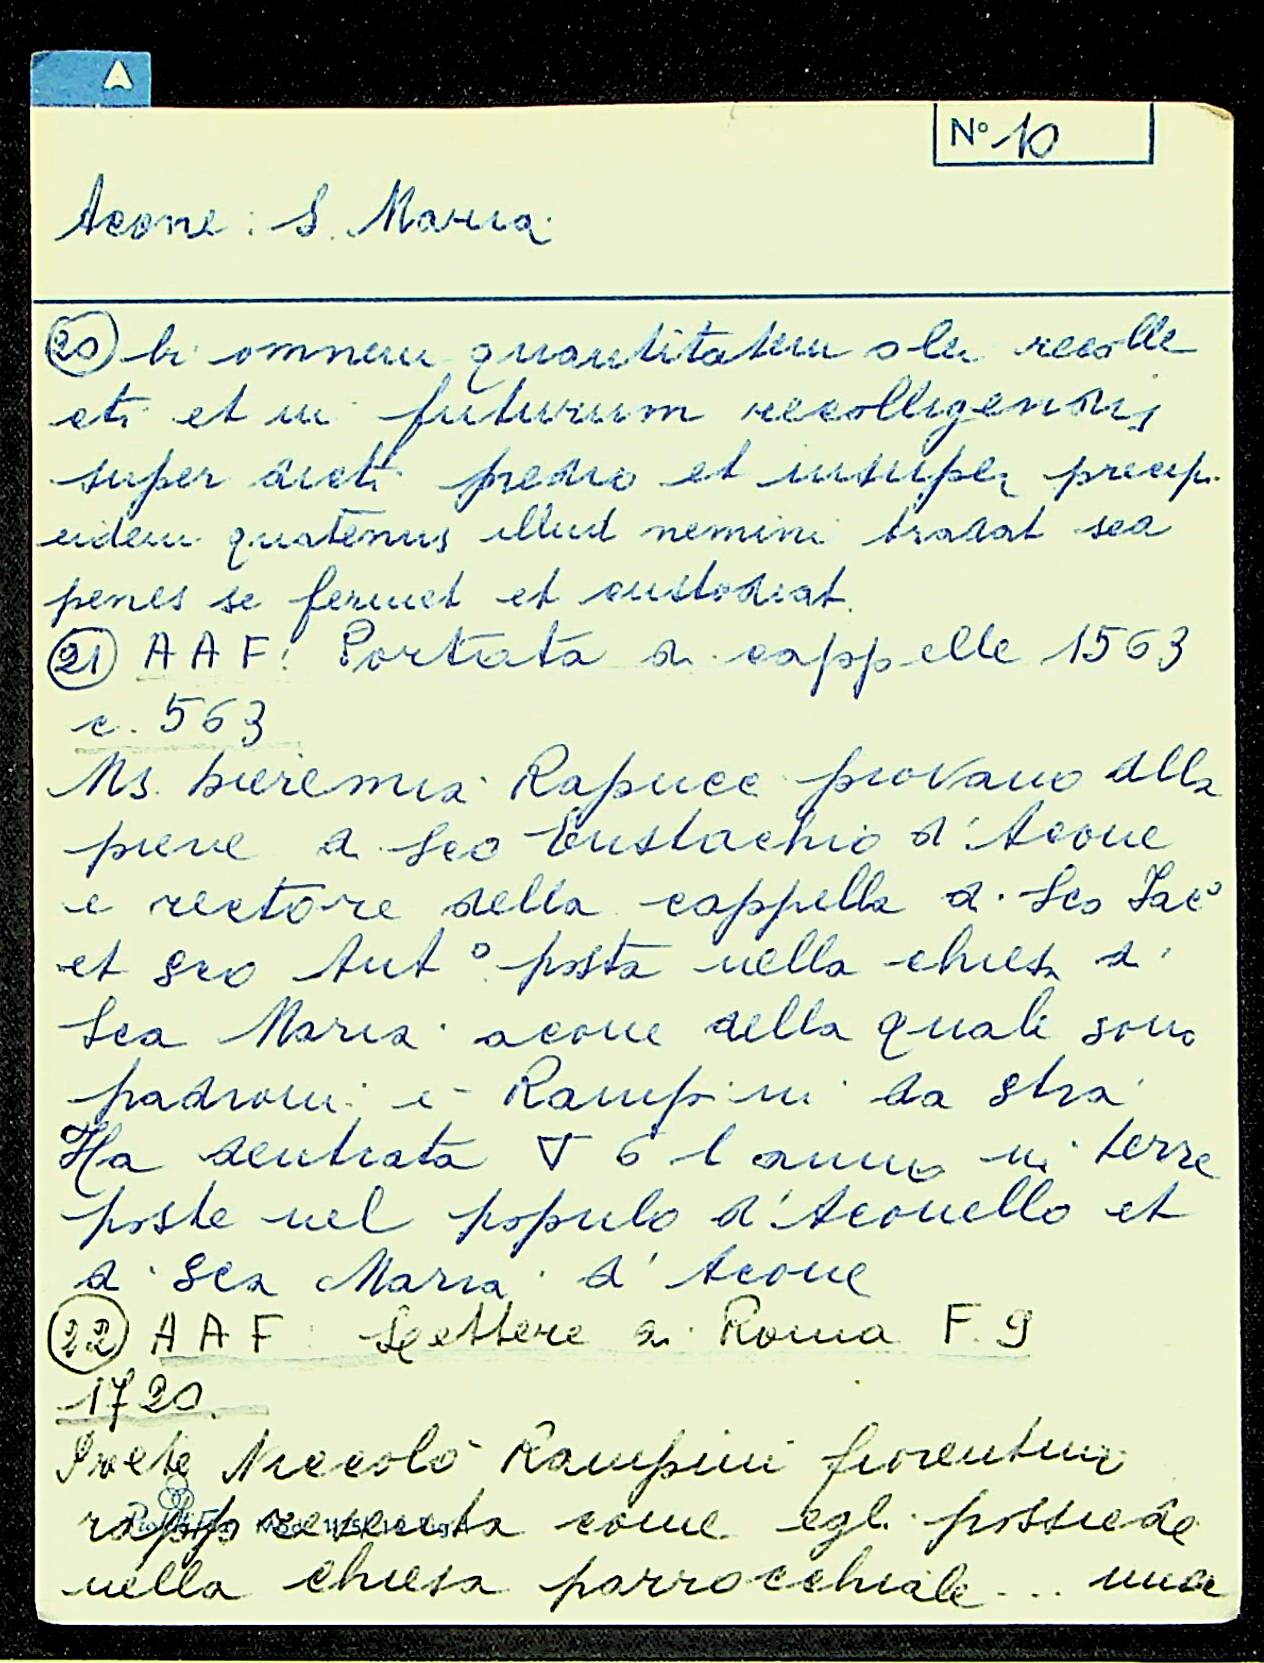 A
N° 10
Acone: S. Maria
20 bi omnem quantitatem olei recolle
cti et in futurum recolligendis
super dicti predio et insuper precip.
eidem quatenus illud nemini tradat sed
penes se fermet et custodiat.
21 AAF: Portata di cappelle 1563
c. 563
Ms. Rapucce piovano della
pieve di Sco Eustachio d'Acone
e rectore della cappella di Sco Jac°
et Sco Ant° posta nella chiesa di
Sca Maria acone della quale sono
padroni e Rampini da Stra
Ha dentrata ∇ 6 l anno in terre
poste nel populo d'Aconello et
di Sca Maria d'Acone
22 AAF: Lettere di Roma F. 9
1720.
Prete Niccolò Rampini fiorentino
rappresenta come egli possiede
nella chiesa parrocchiale ... una